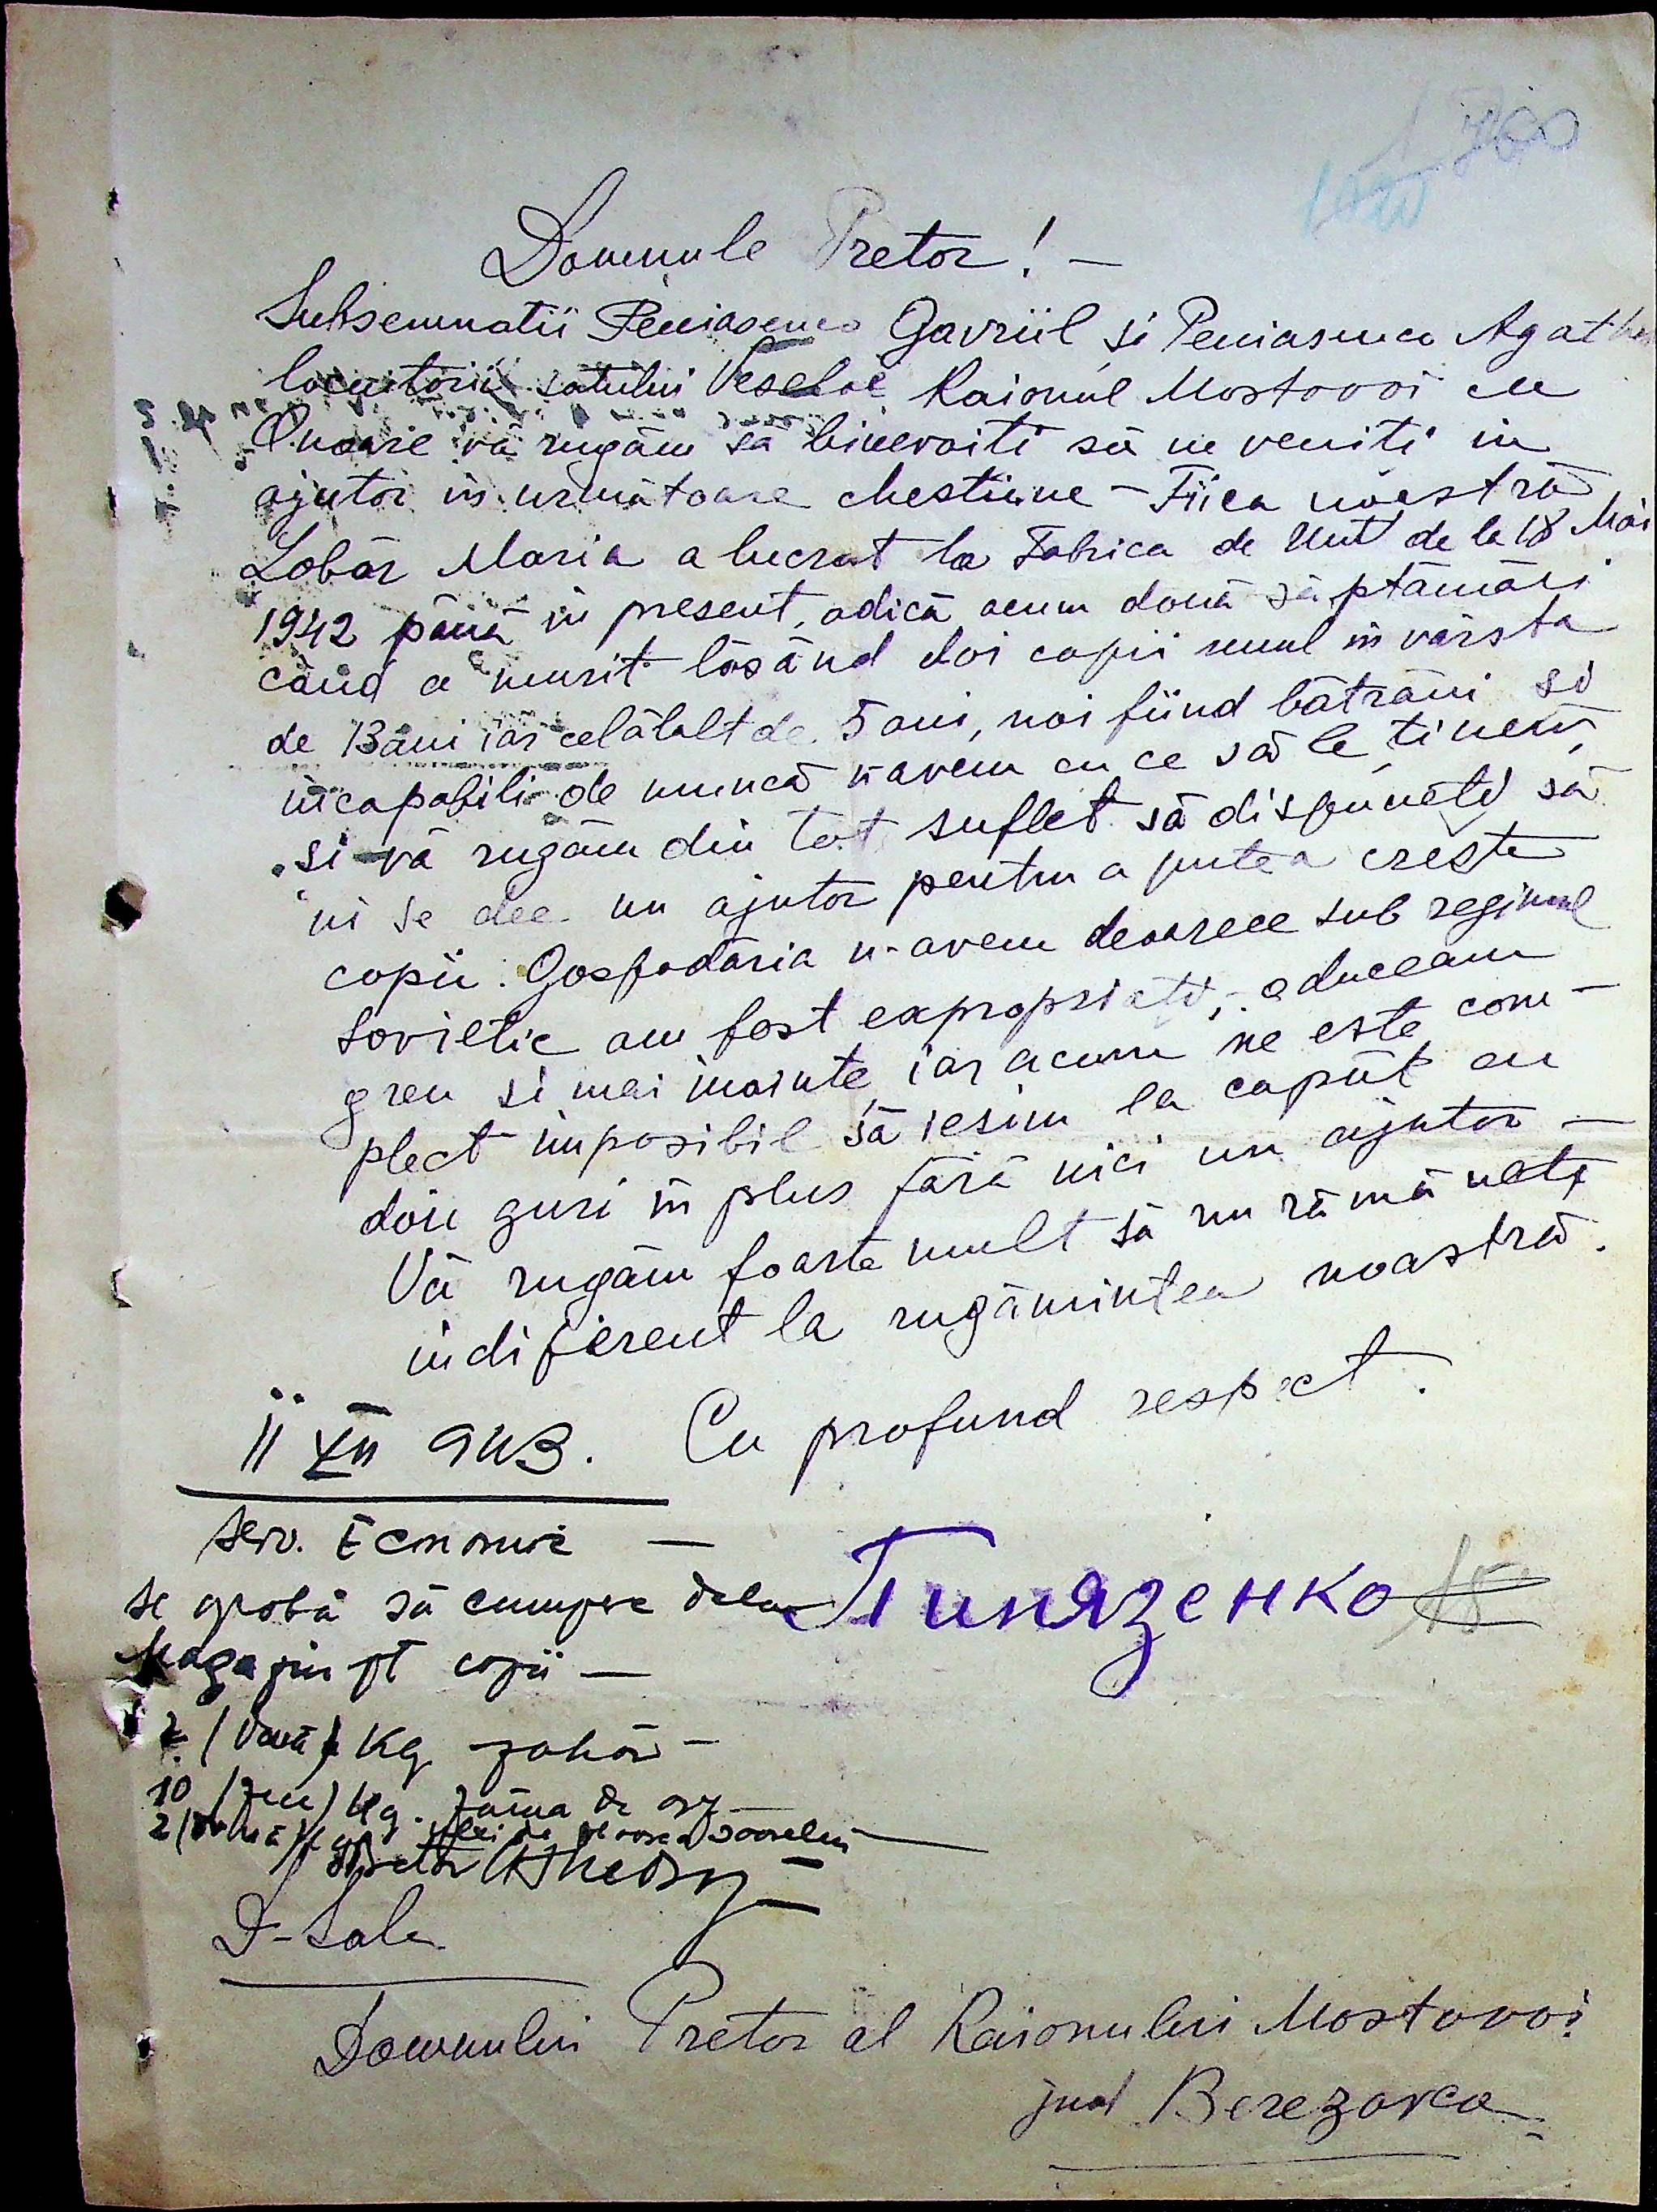 Domnule Pretor! —
Subsemnatii Peniasenco Gavriil si Peniasenco Agat
locuitorii satului Veseloe Raionul Mostovoi cu
Onoare vă rugăm să binevoiti să ne veniti in
ajutor in următoare chestiune – Fiica noastră
Lobăr Maria a lucrat la Fabrica de Unt de la 18 Mai
1942 până in present, adică acum două săptămâni
când a murit lăsând doi copii unul in vârsta
de 13 ani iar celălalt de 5 ani, noi fiind bătrâni si
incapabili de muncă n-avem cu ce să le tinem,
si vă rugăm din tot suflet să dispuneti să
ni se dee un ajutor pentru a putea creste
copii. Gospodăria n-avem deoarece sub regimul
sovietic am fost expropriati, – aduceam
greu si mai inainte, iar acum ne este com-
plect imposibil să iesim la capăt cu
doi guri in plus fără nici un ajutor –
Vă rugăm foarte mult să nu rămâneti
indiferent la rugămintea noastră.
Cu profund respect.
11 XII 943.
Serv. Economic —
se aprobă să cumpere dela
Magazin pt copii —
Пиназенко
2 (două) Kg zahăr –
10 (zece) Kg. făina de orz
2 (două) Kg. ulei de floarea soarelui
Pretor
D-Sale
Domnului Pretor al Raionului Mostovoi
jud Berezovca